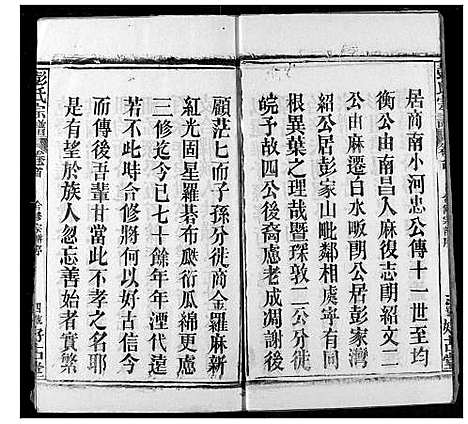 居商南小河忠公傳十一世至均
公由南昌入麻復志朗紹文二
公由麻遷白水畈朗公居彭家灣
紹公居彭家山毗鄰相處寧有同
根異葉之理哉暨琛敦二公分徙
皖予括二地稍裔慮老成凋謝後
顧茫七而子孫分徙商全羅麻新
紅光固星羅碁布瓞衍瓜綿更慮
三修迄今已七十餘年年湮代遠
不此時合修將何以好古信今
而傳後吾輩甘當此不孝之名耶
是有望於族人忽忘善始者實繁
彭氏宗譜
卷首
合修宗譜序
好古堂